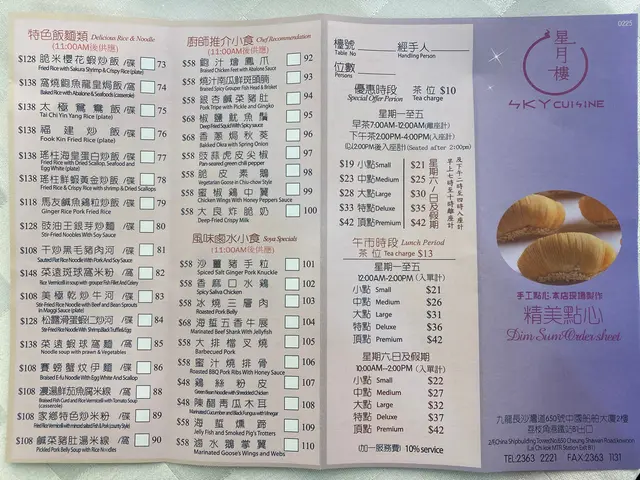 特色飯麵類 Delicious Rice & Noodle
(11:00AM後供應)
$128 脆米櫻花蝦炒飯/碟 73
Fried Rice with Sakura Shrimp & Crispy Rice (plate)
$138 窩燒鮑魚龍皇焗飯/窩 74
Baked Rice with Abalone & Seafoods (casserole)
$138 太極鴛鴦飯/碟 75
Tai Chi Yin Yang Rice (plate)
$138 福建炒飯/碟 76
Fook Kin Fried Rice (plate)
$138 瑤柱海皇蛋白炒飯/碟 77
Fried Rice with Dried Scallop, Seafood and
Egg White (plate)
$138 瑤柱鮮蝦黃金炒飯/碟 78
Fried Rice & Crispy Rice with shrimp & Dried Scallops
$118 馬友鹹魚雞粒炒飯/碟 79
Ginger Rice Pork Fried Rice
$128 豉油王銀芽炒麵/碟 80
Stir-Fried Noodles With Soy Sauce
$108 干炒黑毛豬肉河/碟 81
Sautted Flat Rice Noodle With Pork And Soy Sauce
$148 菜遠斑球窩米粉/窩 82
Rice Vermicelli in soup with grouper Fish Fillet And Celery
$108 美極乾炒牛河/碟 83
Stir-Fried Rice Noodle with Beef and Bean Sprouts
in Maggi Sauce (plate)
$128 松露滑蛋蝦仁炒河/碟 84
$138 菜遠蝦球窩麵/窩 85
Noodle soup with prawn & Vegetables
$108 賽螃蟹炆伊麵/窩 86
Braised E-fu Noodle With Egg White And Scallop
$108 濃湯鮮茄魚腐米線/窩 88
Braised Fish Curd and Rice Vermicelli with Tomato
(casserole)
$108 家鄉特色炒米粉/碟 89
$108 鹹菜豬肚湯米線/窩 90
Pickled Pork Belly Soup with Rice Noodles
廚師推介小食 Chef Recommendation
(11:00AM後供應)
$58 鮑汁炆鳳爪 92
Braised Chicken Feet with Abalone Sauce
$58 燒汁南瓜鮮斑頭腩 93
Braised Spicy Grouper Fish Head & Brisket
$58 銀杏鹹菜豬肚 94
Pork Tripe with Pickle and Gingko
$68 椒鹽魷魚鬚 95
Deep Fried Squid With Spicy sauce
$68 香蔥焗秋葵 96
Bakked Okra with Spring Onion
$58 豉蒜虎皮尖椒 97
Pan-seared green chili pepper
$58 脆皮素鵝 98
Vegetarian Goose in Chiu-chow Style
$58 蜜椒雞中翼 99
Chicken Wings With Honey Peppers Sauce
$58 大良炸脆奶 100
Deep-Fried Crispy Milk
風味鹵水小食 Soya Speciali
(11:00AM後供應)
$58 沙薑豬手粒 101
Spiced Salt Ginger Pork Knuckle
$58 香麻口水雞 102
Spicy Saliva Chicken
$58 冰燒三層肉 103
Roasted Pork Belly
$58 海蜇五香牛展 104
Marinated Beef Shank With Jellyfish
$58 大排檔叉燒 105
Barbecued Pork
$58 蜜汁燒排骨 106
Roasted BBQ Pork Ribs With Honey Sauce
$48 雞絲粉皮 107
Green Bean Noodle with Shredded Chicken
$48 陳醋青瓜木耳 108
Marinated Cucumber and Black Fungus with Vinegar
$58 海蜇燻蹄 109
Jelly Fish and Smoked Pig's Trotters
$58 滷水鵝掌翼 110
Marinated Goose's Wings and Webs
檯號 Table No.
經手人 Handling Person
位數 Persons
優惠時段 Special Offer Period
茶位 $10
Tea charge
星期一至五
早茶7:00AM-12:00AM(離座計)
下午茶2:00PM-4:00PM(入座計)
以2:00PM後入座計(Seated after 2:00pm)
$19 小點 Small $21
$23 中點 Medium $25
$28 大點 Large $30
$33 特點 Deluxe $35
$42 頂點 Premium $42
星期六/日及假期
早上七時至十時離座計
及下午二時至四時入座計
午市時段 Lunch Period
茶位 Tea charge $13
星期一至五
12:00AM-2:00PM (入單計)
小點 Small $21
中點 Medium $26
大點 Large $31
特點 Deluxe $36
頂點 Premium $42
星期六日及假期
10:00AM-2:00PM (入單計)
小點 Small $22
中點 Medium $27
大點 Large $32
特點 Deluxe $37
頂點 Premium $42
(加一服務費) 10% service
0225
星月樓
SKY CUISINE
手工點心 本店採購製作
精美點心
Dim Sum Order sheet
九龍長沙灣道650號中國船舶大廈2樓
荔枝角港鐵站B1出口
2/F,China Shipbuilding Tower,No.650 Cheung Shawan Road,kowloon
(Lai Chi kok MTR Station Exit B1)
TEL:2363 2221 FAX:2363 1131